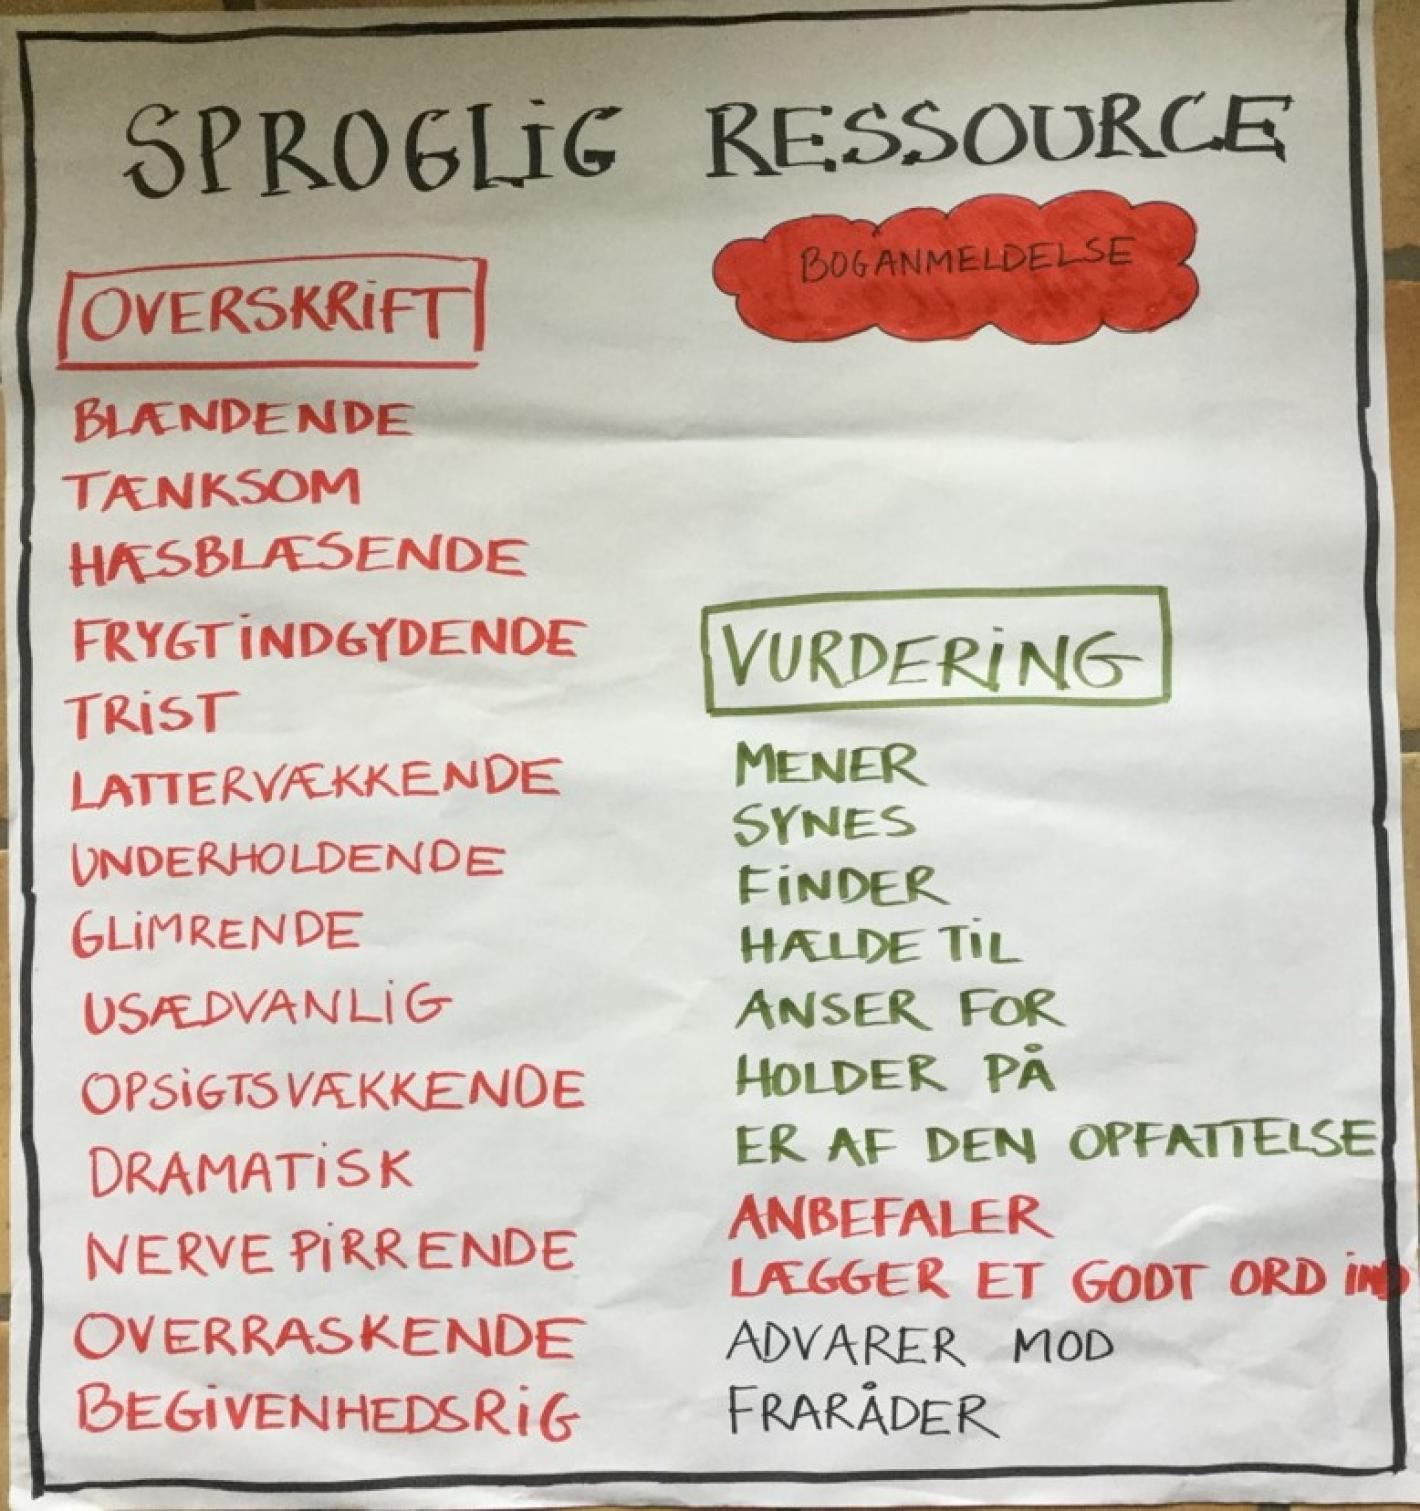 SPROGLIG RESSOURCE
BOGANMELDELSE
OVERSKRIFT
BLÆNDENDE
TÆNKSOM
HÆSBLÆSENDE
FRYGTINDGYDENDE
TRIST
LATTERVÆKKENDE
UNDERHOLDENDE
GLIMRENDE
USÆDVANLIG
OPSIGTSVÆKKENDE
DRAMATISK
NERVEPIRRENDE
OVERRASKENDE
BEGIVENHEDSRIG
VURDERING
MENER
SYNES
FINDER
HÆLDE TIL
ANSER FOR
HOLDER PÅ
ER AF DEN OPFATTELSE
ANBEFALER
LÆGGER ET GODT ORD IND
ADVARER MOD
FRARÅDER